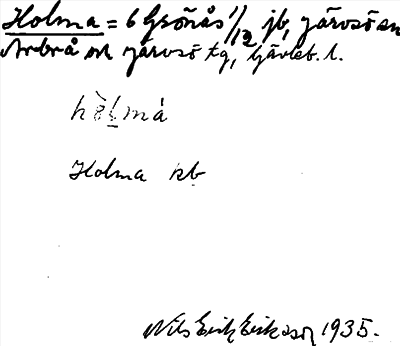 Holma = 6 Grönås 1/12 jb, Järvsö sn
Arbrå och Järvsö tg, Gävleb. l.
Holma kb
Nils Erik Eriksson 1935.